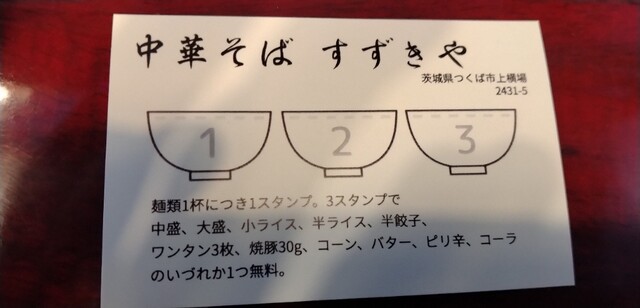 中華そば すずきや
茨城県つくば市上横場
2431-5
1 2 3
麺類1杯につき1スタンプ。3スタンプで
中盛、大盛、小ライス、半ライス、半餃子、
ワンタン3枚、焼豚30g、コーン、バター、ピリ辛、コーラ
のいづれか1つ無料。